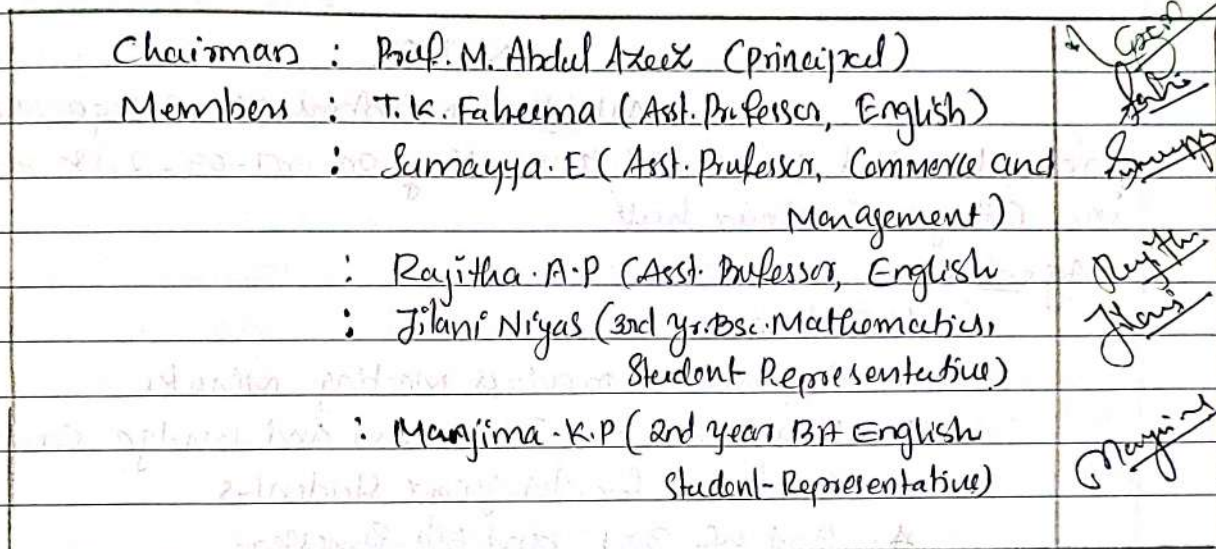 Chairman : Prof. M. Abdul Azeez (Principal)
Members : T.K. Faheema (Asst. Professor, English)
: Sumayya. E (Asst. Professor, Commerce and
Management)
: Rajitha. A.P (Asst. Professor, English
: Jilani Niyas (3rd yr. Bsc. Mathematics,
Student Representative)
: Manjima. K.P (2nd year BA English
Student-Representative)